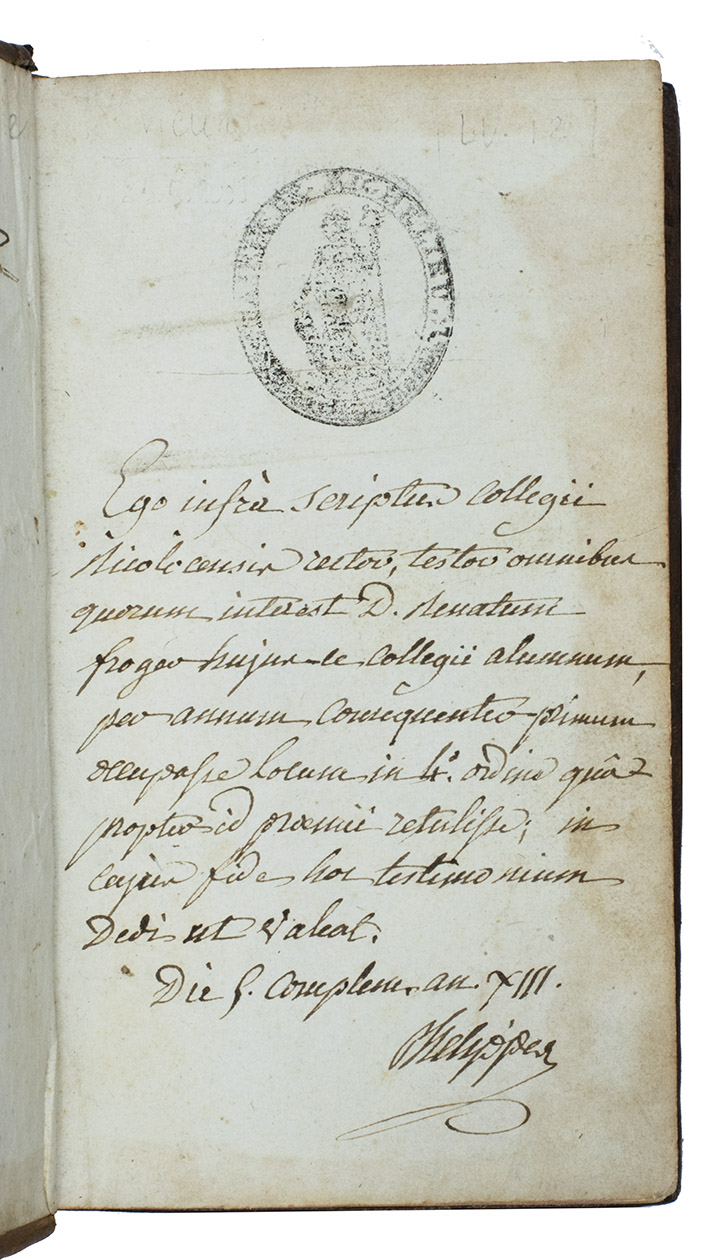 Ego infrà scriptus Collegii
Ricolocensis rector, testor omnibus
quorum interest D. Renatum
froger hujus-ce collegii alumnum,
per annum Consequenter primum
occupasse locum in 4.° ordine quâ
propter id præmii retulisse; in
cujus fide hoc testimonium
Dedi ut Valeat.
Die 5. Complem. an. XIII.